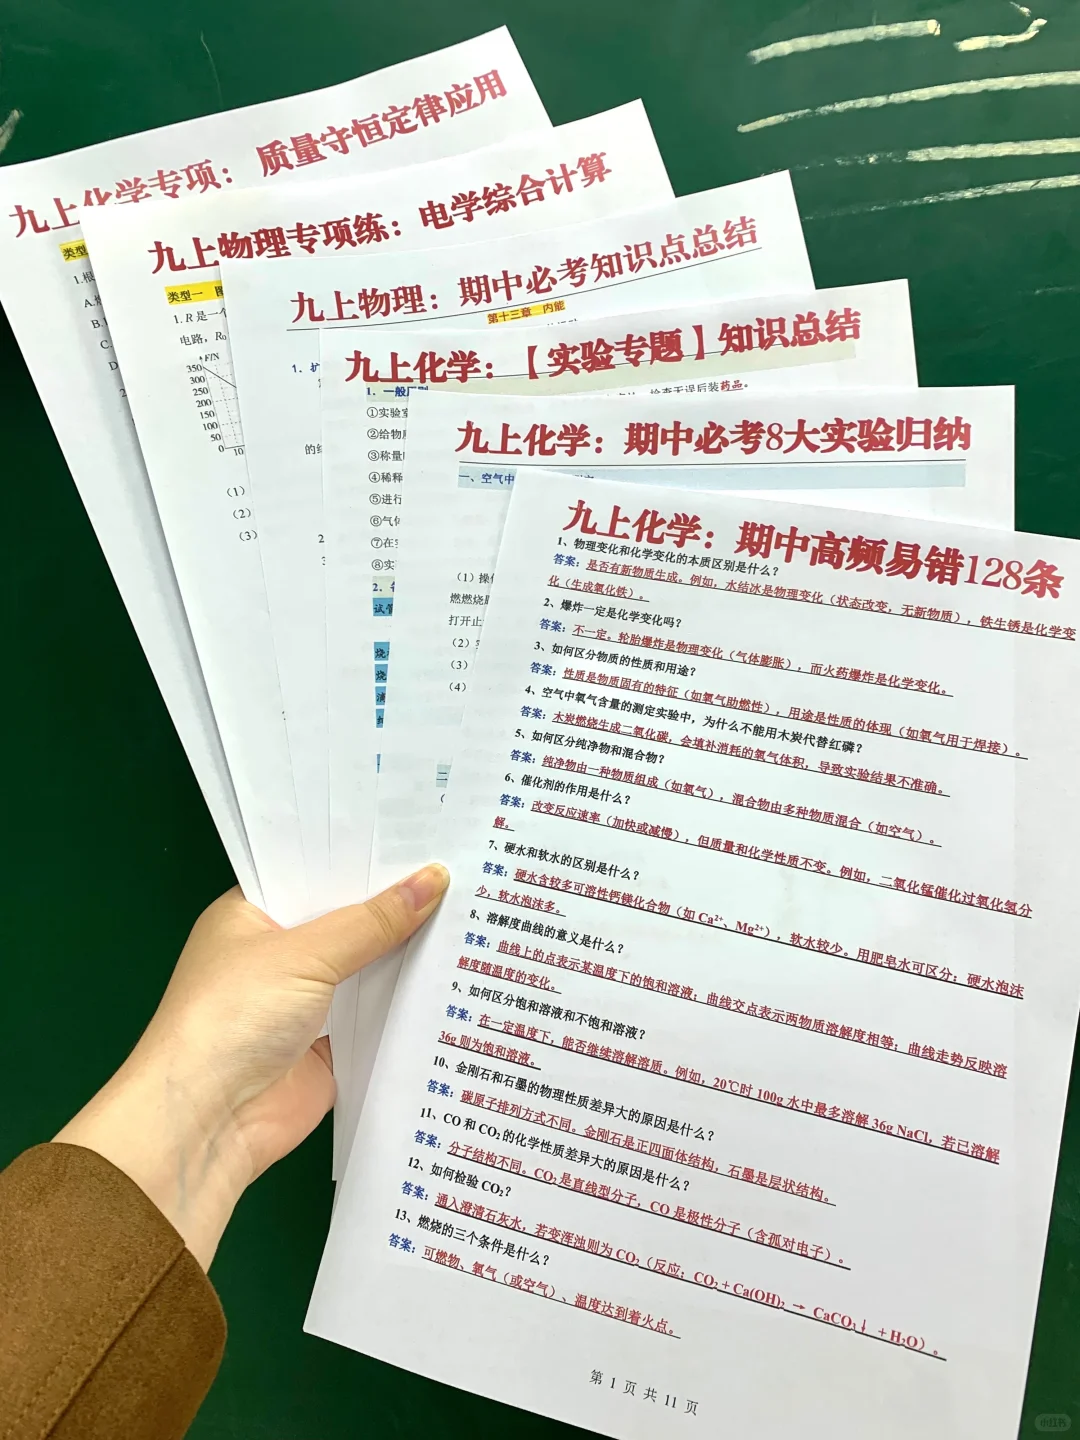 九上化学专项：质量守恒定律应用
类型
1.根
A.
B.
C.
D
2
九上物理专项练：电学综合计算
类型一 图
1. R 是一个
电路，R₀
F/N
350
300
250
200
150
100
50
0
10
（1）
（2）
（3）
九上物理：期中必考知识点总结
第十三章 内能
1．扩
的纟
2
3
九上化学：【实验专题】知识总结
检查无误后装药品。
1．一般
①实验室
②给物质
③称量
④稀释
⑤进行
⑥气体
⑦在
⑧实
2．
试管
烧
烧
九上化学：期中必考8大实验归纳
一、空气中
（1）操作
燃燃烧
打开止
（2）
（3）
（4）
二
（
九上化学：期中高频易错128条
1、物理变化和化学变化的本质区别是什么？
答案：是否有新物质生成。例如，水结冰是物理变化（状态改变，无新物质），铁生锈是化学变
化（生成氧化铁）。
2、爆炸一定是化学变化吗？
答案：不一定。轮胎爆炸是物理变化（气体膨胀），而火药爆炸是化学变化。
3、如何区分物质的性质和用途？
答案：性质是物质固有的特征（如氧气助燃性），用途是性质的体现（如氧气用于焊接）。
4、空气中氧气含量的测定实验中，为什么不能用木炭代替红磷？
答案：木炭燃烧生成二氧化碳，会填补消耗的氧气体积，导致实验结果不准确。
5、如何区分纯净物和混合物？
答案：纯净物由一种物质组成（如氧气），混合物由多种物质混合（如空气）。
6、催化剂的作用是什么？
答案：改变反应速率（加快或减慢），但质量和化学性质不变。例如，二氧化锰催化过氧化氢分
解。
7、硬水和软水的区别是什么？
答案：硬水含较多可溶性钙镁化合物（如 Ca²⁺、Mg²⁺），软水较少。用肥皂水可区分：硬水泡沫
少，软水泡沫多。
8、溶解度曲线的意义是什么？
答案：曲线上的点表示某温度下的饱和溶液；曲线交点表示两物质溶解度相等；曲线走势反映溶
解度随温度的变化。
9、如何区分饱和溶液和不饱和溶液？
答案：在一定温度下，能否继续溶解溶质。例如，20℃时 100g 水中最多溶解 36g NaCl，若已溶解
36g 则为饱和溶液。
10、金刚石和石墨的物理性质差异大的原因是什么？
答案：碳原子排列方式不同。金刚石是正四面体结构，石墨是层状结构。
11、CO 和 CO₂ 的化学性质差异大的原因是什么？
答案：分子结构不同。CO₂ 是直线型分子，CO 是极性分子（含孤对电子）。
12、如何检验 CO₂？
答案：通入澄清石灰水，若变浑浊则为 CO₂（反应：CO₂ + Ca(OH)₂ → CaCO₃↓ + H₂O）。
13、燃烧的三个条件是什么？
答案：可燃物、氧气（或空气）、温度达到着火点。
第 1 页 共 11 页
小红书